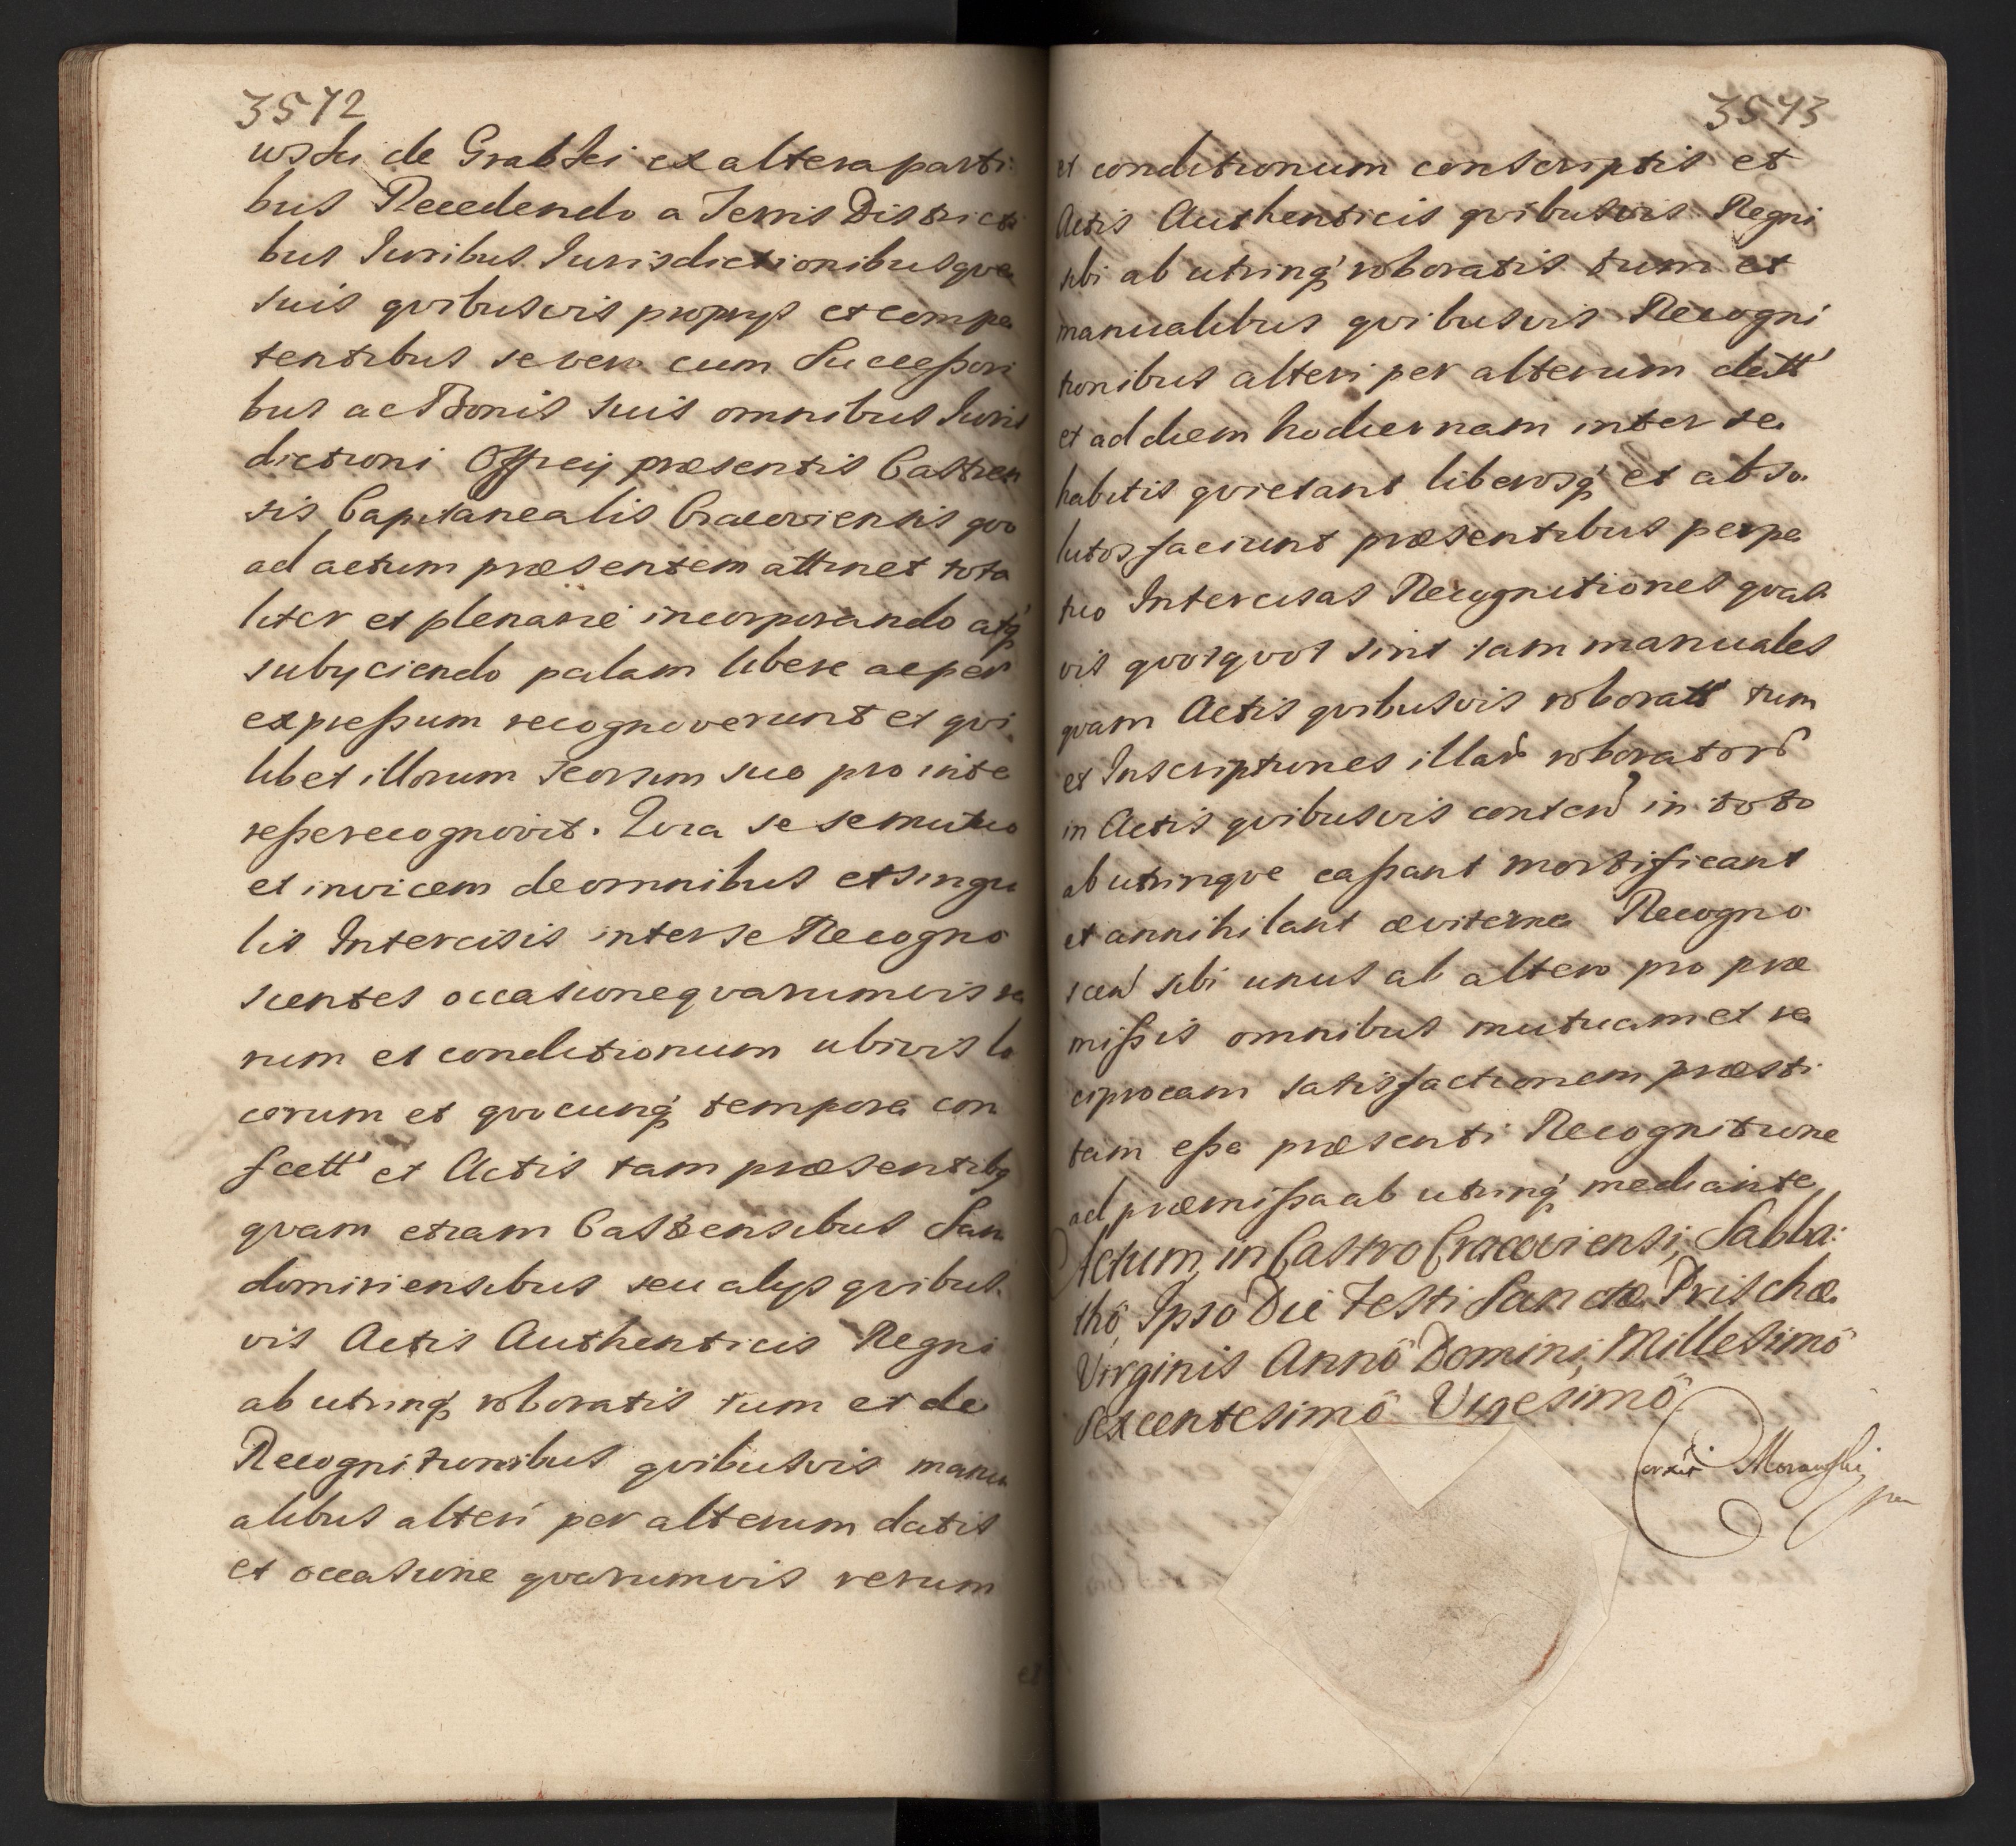 3572
wski de Grabki ex altera parti
bus Recedendo a Terris Districti
bus Iuribus Iurisdictionibusque
suis qvibusvis proprijs et compe
tentibus se vero cum Succeßori
bus ac Bonis suis omnibus Iuris
dictioni Officij præsentis Castren
sis Capitanealis Cracoviensis qvo
ad actum præsentem attinet tota
liter et plenarie incorporando atq́
subijciendo palam libere ac per
expreßum recognoverunt et qvi
libet illorum seorsim suo pro inte
reße recognovit. Qvia se se mutuo
et invicem de omnibus et singu
lis Intercisis inter se Recogno
scentes occasione qvarumvis re
rum et conditionum ubivis lo
corum et qvocunq́ tempore con
fectt' et Actis tam præsentibq
qvam etiam Castrensibus San
domiriensibus seu alijs qvibus
vis Actis Authenticis Regni
ab utrinq́ roboratis tum et de
Recognitionibus qvibusvis manu
alibus alteri per alterum datis
et occasione qvarumvis rerum
et
3573
et conditionum conscriptis et
Actis Authenticis qvibusvis Regni
sibi ab utrinq́ roboratis tum et
manualibus qvibusvis Recogni
tionibus alteri per alterum datt'
et ad diem hodiernam inter se
habitis qvietant liberosq́ et abso
lutos faciunt præsentibus perpe
tuo Intercisas Recognitiones qvas
vis qvotqvot sint tam manuales
qvam Actis qvibusvis roboratt' tum
et Inscriptiones illar roborator
in Actis qvibusvis conten in toto
ab utrinqve caßant mortificant
et annihilant æviterne Recogno
scen sibi unus ab altero pro præ
mißis omnibus mutuam et re
ciprocam satisfactionem præsti
tam eße præsenti Recognitione
ad præmißa ab utrinq́ mediante
Actum in Castro Cracoviensi, Sabba:
thô, Ipso Die Festi Sanctæ Prischæ
Virginis Annô Domini, Millesimô
Sexcentesimô Vigesimô
Morawski